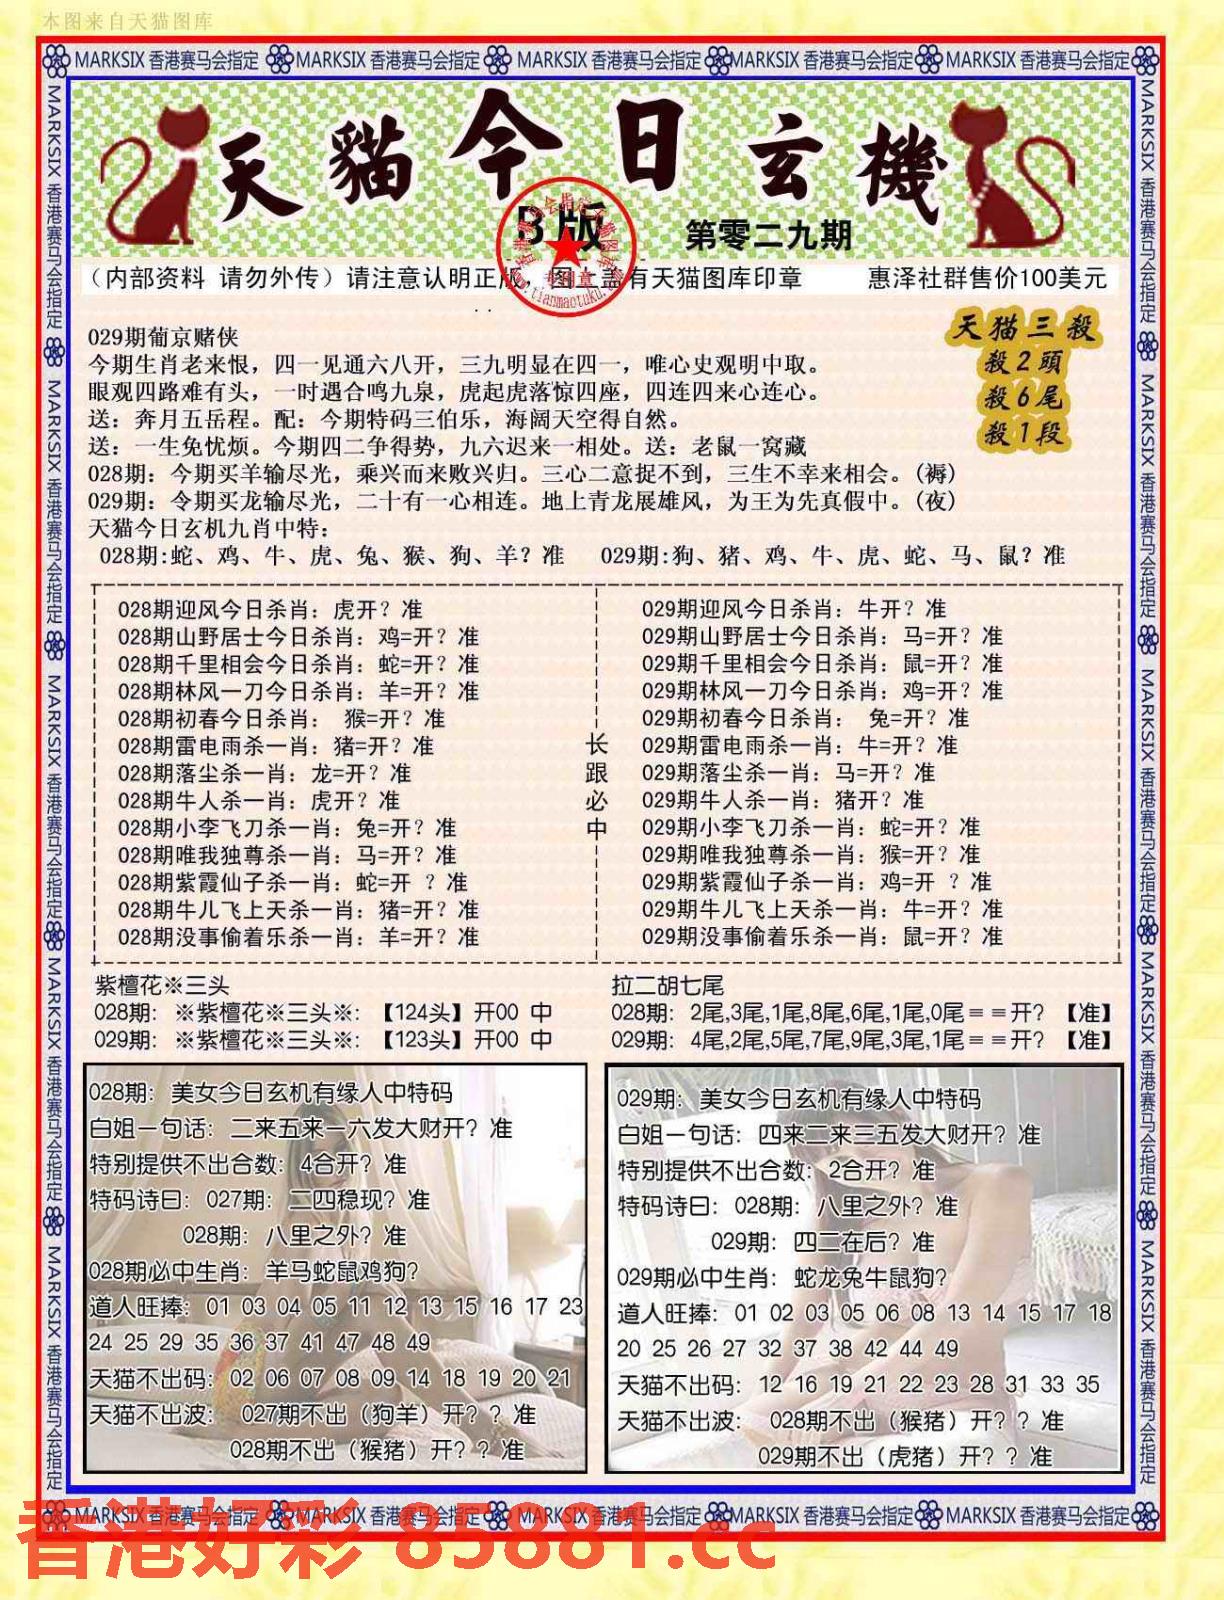 本图来自天猫图库
MARKSIX 香港赛马会指定 MARKSIX 香港赛马会指定 MARKSIX 香港赛马会指定 MARKSIX 香港赛马会指定 MARKSIX 香港赛马会指定
天貓今日玄機
B版
第零二九期
(内部资料 请勿外传) 请注意认明正版，图上盖有天猫图库印章 惠泽社群售价100美元
029期葡京赌侠
今期生肖老来恨，四一见通六八开，三九明显在四一，唯心史观明中取。
眼观四路难有头，一时遇合鸣九泉，虎起虎落惊四座，四连四来心连心。
送：奔月五岳程。配：今期特码三伯乐，海阔天空得自然。
送：一生免忧烦。今期四二争得势，九六迟来一相处。送：老鼠一窝藏
028期：今期买羊输尽光，乘兴而来败兴归。三心二意捉不到，三生不幸来相会。(褥)
029期：令期买龙输尽光，二十有一心相连。地上青龙展雄风，为王为先真假中。(夜)
天猫三殺
殺2頭
殺6尾
殺1段
天猫今日玄机九肖中特：
028期:蛇、鸡、牛、虎、兔、猴、狗、羊？准 029期:狗、猪、鸡、牛、虎、蛇、马、鼠？准
028期迎风今日杀肖：虎开？准
028期山野居士今日杀肖：鸡=开？准
028期千里相会今日杀肖：蛇=开？准
028期林风一刀今日杀肖：羊=开？准
028期初春今日杀肖： 猴=开？准
028期雷电雨杀一肖：猪=开？准
028期落尘杀一肖：龙=开？准
028期牛人杀一肖：虎开？准
028期小李飞刀杀一肖：兔=开？准
028期唯我独尊杀一肖：马=开？准
028期紫霞仙子杀一肖：蛇=开 ？准
028期牛儿飞上天杀一肖：猪=开？准
028期没事偷着乐杀一肖：羊=开？准
长跟必中
029期迎风今日杀肖：牛开？准
029期山野居士今日杀肖：马=开？准
029期千里相会今日杀肖：鼠=开？准
029期林风一刀今日杀肖：鸡=开？准
029期初春今日杀肖： 兔=开？准
029期雷电雨杀一肖：牛=开？准
029期落尘杀一肖：马=开？准
029期牛人杀一肖：猪开？准
029期小李飞刀杀一肖：蛇=开？准
029期唯我独尊杀一肖：猴=开？准
029期紫霞仙子杀一肖：鸡=开 ？准
029期牛儿飞上天杀一肖：牛=开？准
029期没事偷着乐杀一肖：鼠=开？准
紫檀花※三头
028期: ※紫檀花※三头※: 【124头】开00 中
029期: ※紫檀花※三头※: 【123头】开00 中
拉二胡七尾
028期: 2尾,3尾,1尾,8尾,6尾,1尾,0尾＝＝开? 【准】
029期: 4尾,2尾,5尾,7尾,9尾,3尾,1尾＝＝开? 【准】
028期: 美女今日玄机有缘人中特码
白姐一句话: 二来五来一六发大财开? 准
特别提供不出合数: 4合开? 准
特码诗曰: 027期: 二四稳现? 准
028期: 八里之外? 准
028期必中生肖: 羊马蛇鼠鸡狗?
道人旺捧: 01 03 04 05 11 12 13 15 16 17 23
24 25 29 35 36 37 41 47 48 49
天猫不出码: 02 06 07 08 09 14 18 19 20 21
天猫不出波: 027期不出（狗羊）开? ? 准
028期不出（猴猪）开? ? 准
029期: 美女今日玄机有缘人中特码
白姐一句话: 四来二来三五发大财开? 准
特别提供不出合数: 2合开? 准
特码诗曰: 028期: 八里之外? 准
029期: 四二在后? 准
029期必中生肖: 蛇龙兔牛鼠狗?
道人旺捧: 01 02 03 05 06 08 13 14 15 17 18
20 25 26 27 32 37 38 42 44 49
天猫不出码: 12 16 19 21 22 23 28 31 33 35
天猫不出波: 028期不出（猴猪）开? ? 准
029期不出（虎猪）开? ? 准
MARKSIX 香港赛马会指定 MARKSIX 香港赛马会指定 MARKSIX 香港赛马会指定 MARKSIX 香港赛马会指定 MARKSIX 香港赛马会指定
香港好彩 85881.cc